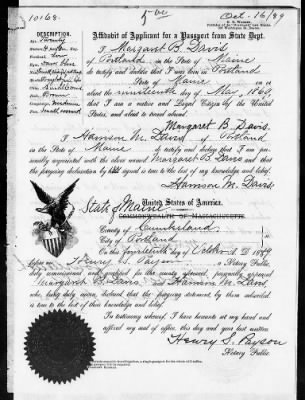 10168.
Oct. 16/89
Affidavit of Applicant for a Passport from State Dept.
DESCRIPTION.
I Margaret B. Davis
of Portland in the State of Maine
do testify and declare that I was born in Portland
State of Maine on the
nineteenth day of May, 1860,
that I am a native and Loyal Citizen of the United
States, and about to travel abroad
Margaret B. Davis.
I Harrison M. Davis of Portland
in the State of Maine do testify and declare that I am per-
sonally acquainted with the above named Margaret B. Davis and that
the foregoing declaration by her is true to the best of my knowledge and belief.
Harrison M. Davis.
United States of America.
State of Maine
COMMONWEALTH OF MASSACHUSETTS.
County of Cumberland.
City of Portland
On this fourteenth day of October A. D. 1889
before me Henry S. Payson Notary Public,
duly commissioned and qualified for the county aforesaid, personally appeared
Margaret B. Davis and Harrison M. Davis
who, being duly sworn, declared that the foregoing statement by them subscribed
is true to the best of their knowledge and belief.
In testimony whereof, I have hereunto set my hand and
affixed my seal of office, this day and year last written.
Henry S. Payson
Notary Public.